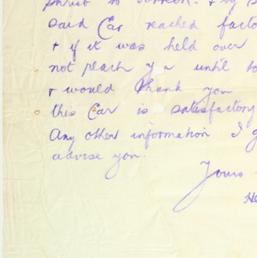 said Car reached factory
& if it was held over
not reach you until
& would thank you
this Car is satisfactory
Any other information I
advise you.
Yours